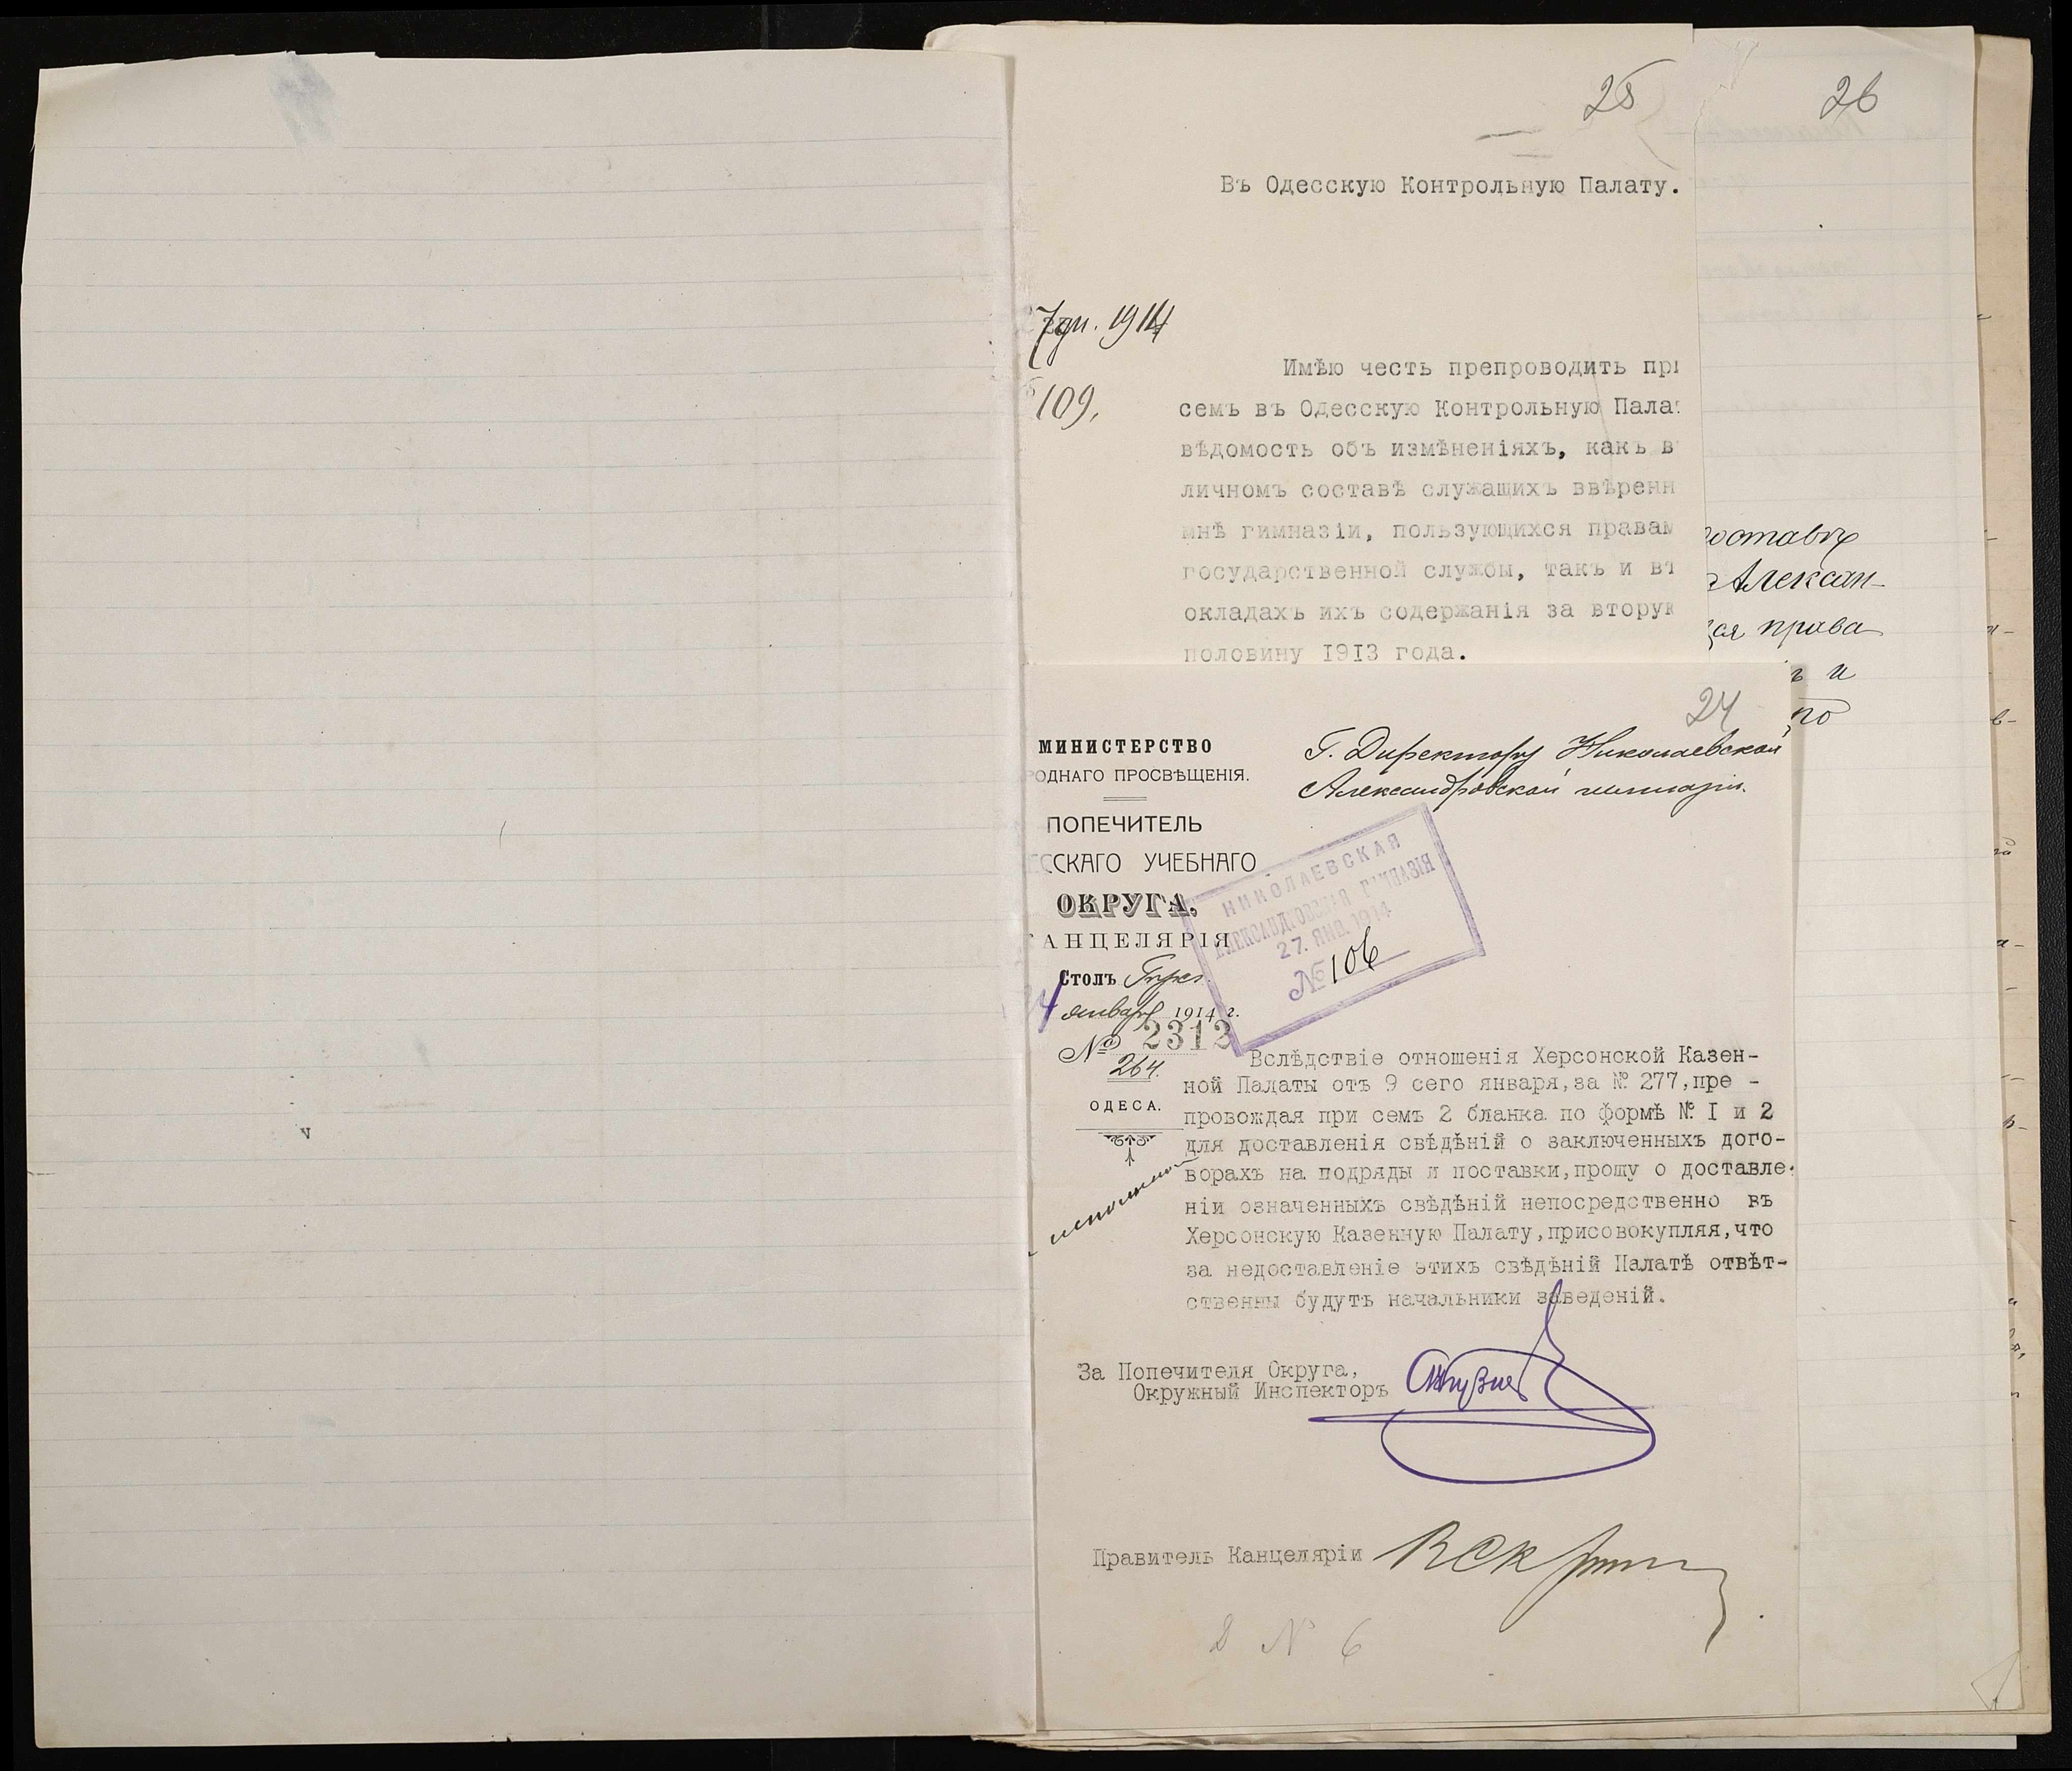 25
26
Въ Одесскую Контрольную Палату.
1914
109.
Имѣю честь препроводить при
семъ въ Одесскую Контрольную Палат
вѣдомость объ измѣненіяхъ, какъ в
личномъ составѣ служащихъ ввѣренн
мнѣ гимназіи, пользующихся правам
государственной службы, такъ и въ
окладахъ ихъ содержанія за вторую
половину 1913 года.
составѣ
Алексан-
ся права
ъ и
по
24
МИНИСТЕРСТВО
РОДНАГО ПРОСВѢЩЕНІЯ.
ПОПЕЧИТЕЛЬ
ЕССКАГО УЧЕБНАГО
ОКРУГА,
КАНЦЕЛЯРІЯ
Столъ
4 января 1914 г.
№ 2312
264.
ОДЕСА.
Г. Директору Николаевской
Александровской гимназіи.
НИКОЛАЕВСКАЯ
АЛЕКСАНДРОВСКАЯ ГИМНАЗІЯ
27. ЯНВ. 1914
№ 106
Вслѣдствіе отношенія Херсонской Казен-
ной Палаты отъ 9 сего января, за № 277, пре -
провождая при семъ 2 бланка по формѣ № I и 2
для доставленія свѣдѣній о заключенныхъ дого-
ворахъ на подряды и поставки, прошу о доставле-
ніи означенныхъ свѣдѣній непосредственно въ
Херсонскую Казенную Палату, присовокупляя, что
за недоставленіе этихъ свѣдѣній Палатѣ отвѣт-
ственны будутъ начальники заведеній.
исполнено
За Попечителя Округа,
Окружный Инспекторъ
Правитель Канцеляріи
№ 6